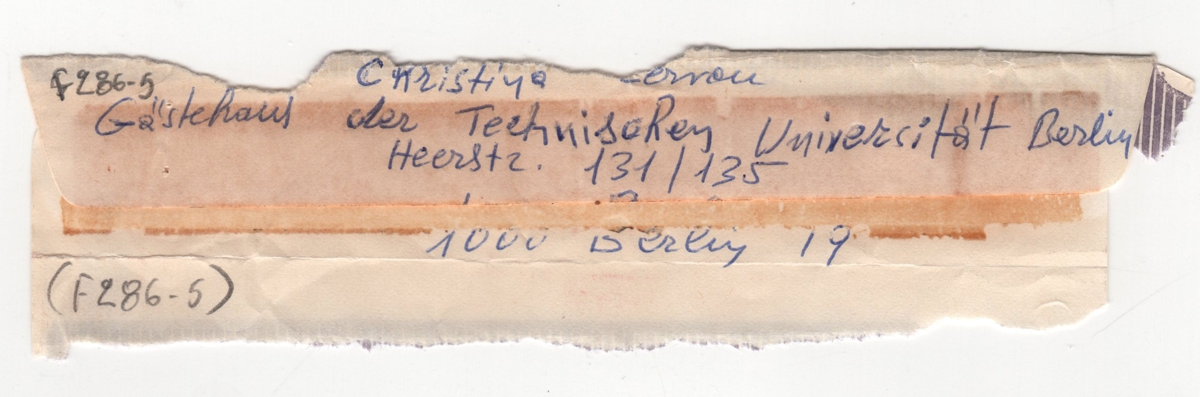 F286-5 Christina
Gästehaus der Technischen Universität Berlin
Heerstr. 131/135
1000 Berlin 19
(F286-5)